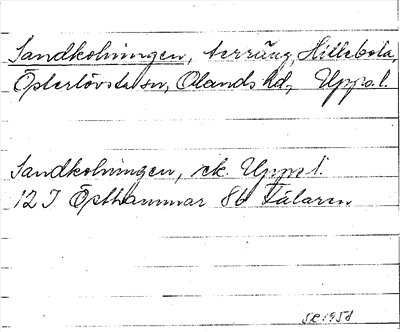 Sandkolningen, terräng, Hillebola,
Österlövsta sn, Olands hd, Upps. l.
Sandkolningen, ek. Upps l.
12 I Östhammar 8b Fälaren